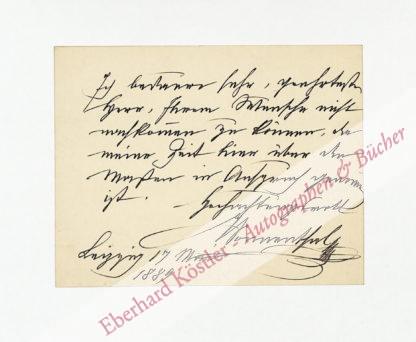 Ich bedaure sehr, geehrtester
Herr, Ihrem Wunsche nicht
nachkommen zu können, da
meine Zeit hier über die
Massen in Anspruch genommen
ist. – Hochachtungsvoll
Sonnenthal
Leipzig 17 Mai
188
Eberhard Köstler - Autographen & Bücher